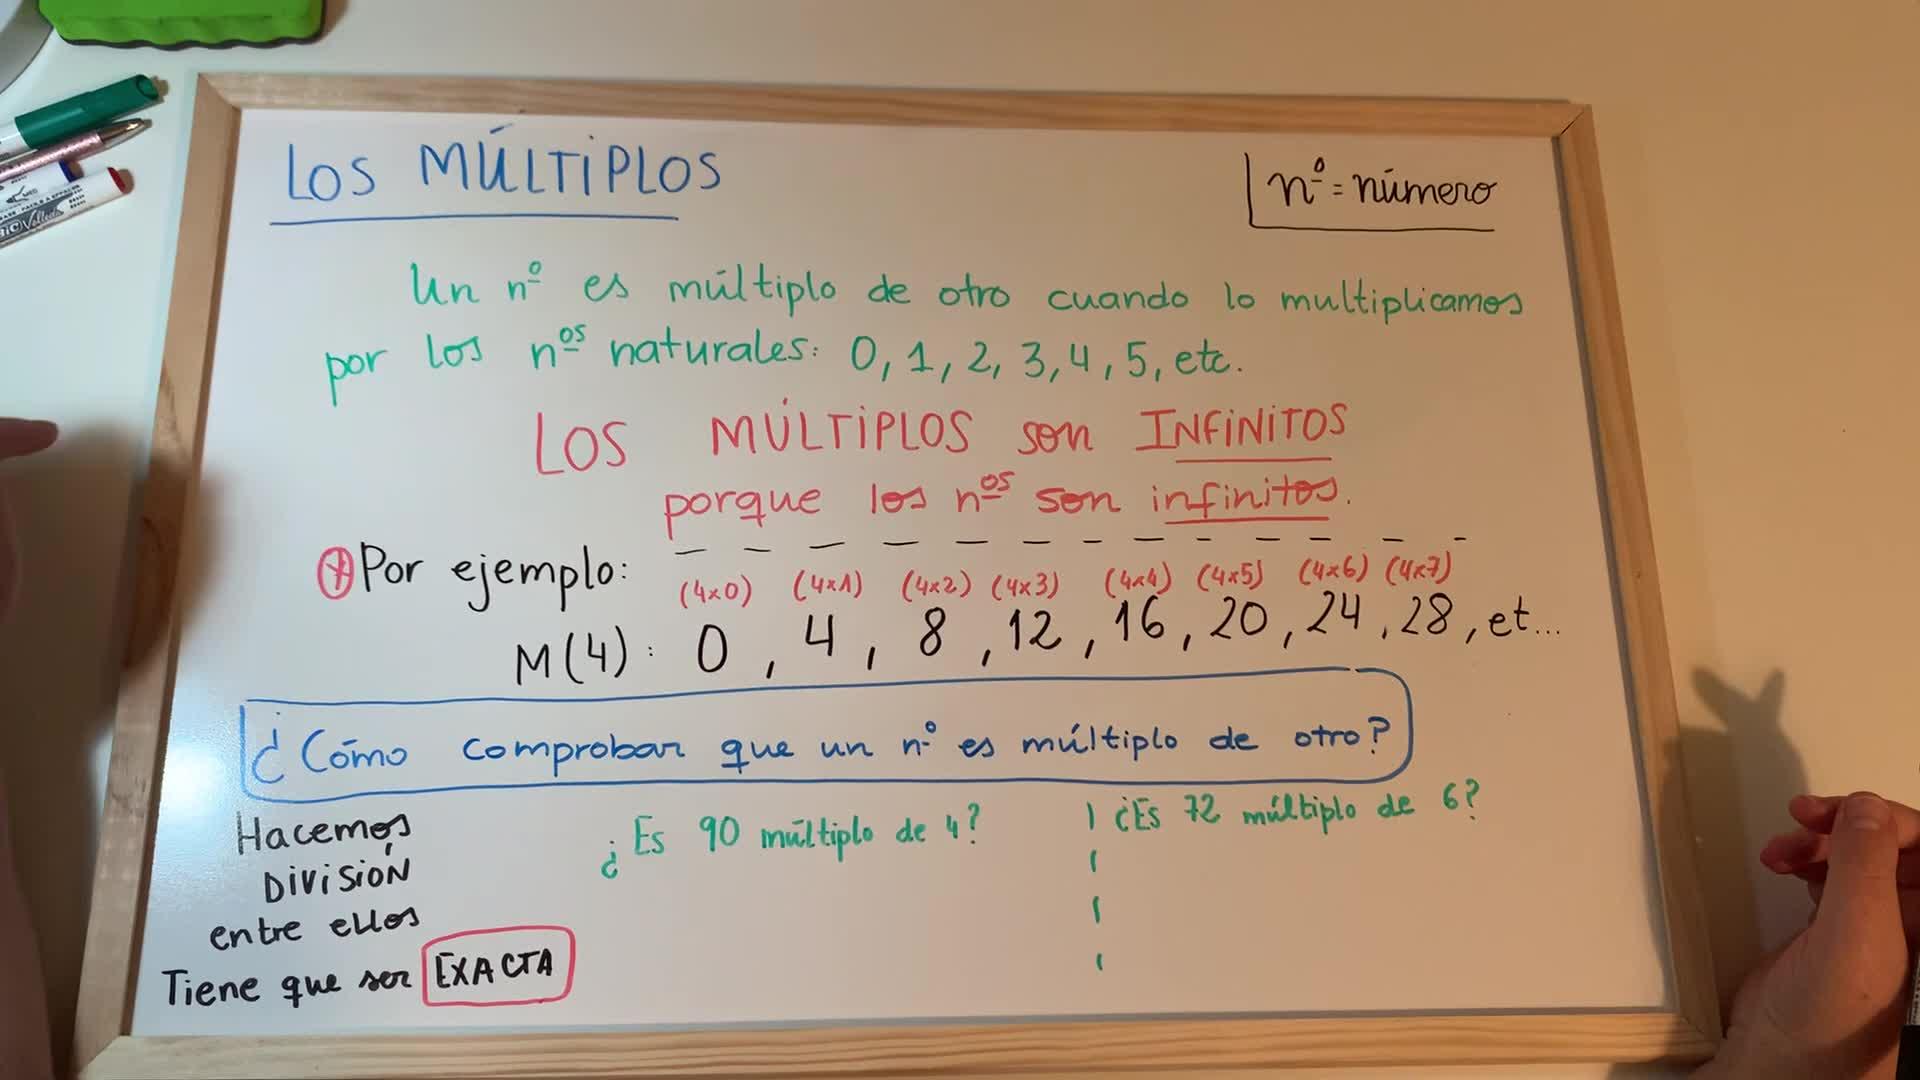 LOS MÚLTIPLOS
nº = número
Un nº es múltiplo de otro cuando lo multiplicamos
por los nos naturales: 0, 1, 2, 3, 4, 5, etc.
LOS MÚLTIPLOS son INFINITOS
porque los nos son infinitos.
Por ejemplo:
(4x0) (4x1) (4x2) (4x3) (4x4) (4x5) (4x6) (4x7)
M(4): 0, 4, 8, 12, 16, 20, 24, 28, et...
¿Cómo comprobar que un nº es múltiplo de otro?
Hacemos
DIVISIÓN
entre ellos
Tiene que ser EXACTA
¿Es 90 múltiplo de 4?
¿Es 72 múltiplo de 6?
BIC Velleda